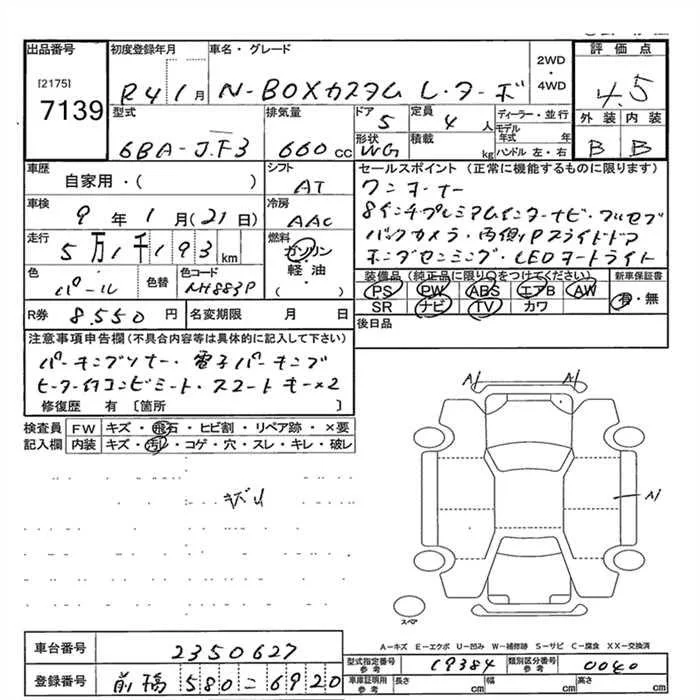 出品番号
[2175]
7139
初度登録年月
R4 1月
車名・グレード
N-BOXカスタム L・ターボ
2WD
・
4WD
評価点
4.5
外装 内装
B B
型式
6BA-JF3
排気量
660 CC
ドア
5
形状
WG
定員
4 人
積載
kg
ディーラー・並行
モデル年式 年
ハンドル 左・右
車歴
自家用・( )
シフト
AT
セールスポイント (正常に機能するものに限ります)
ワンオーナー
8インチプレミアムインターナビ・フルセグ
バックカメラ・両側Pスライドドア
ホンダセンシング・LEDヘッドライト
車検
9年1月(21日)
冷房
AAC
走行
5万1千193km
燃料
ガソリン
軽油
( )
色
パール
色替
色コード
NH883P
装備品 (純正品に限り○をつけてください)
PS PW ABS エアB AW
SR ナビ TV カワ
新車保証書
有・無
R券
8,550円
名変期限 月 日
後日品
注意事項申告欄(不具合内容等は具体的に記入して下さい)
パーキングソナー・電子パーキング
ヒーター付コンビシート・スマートキー×2
修復歴 有 〔箇所 〕
検査員記入欄
FW キズ・飛石・ヒビ割・リペア跡・×要
内装 キズ・汚レ・コゲ・穴・スレ・キレ・破レ
A1 A1
A1
スペア
A-キズ E-エクボ U-凹み W-補修跡 S-サビ C-腐食 XX-交換済
車台番号
2350627
登録番号
前橋580に6920
型式指定番号
参考
19384
類別区分番号
参考
0040
車庫証明用
参考
長さ cm
幅 cm
高さ cm